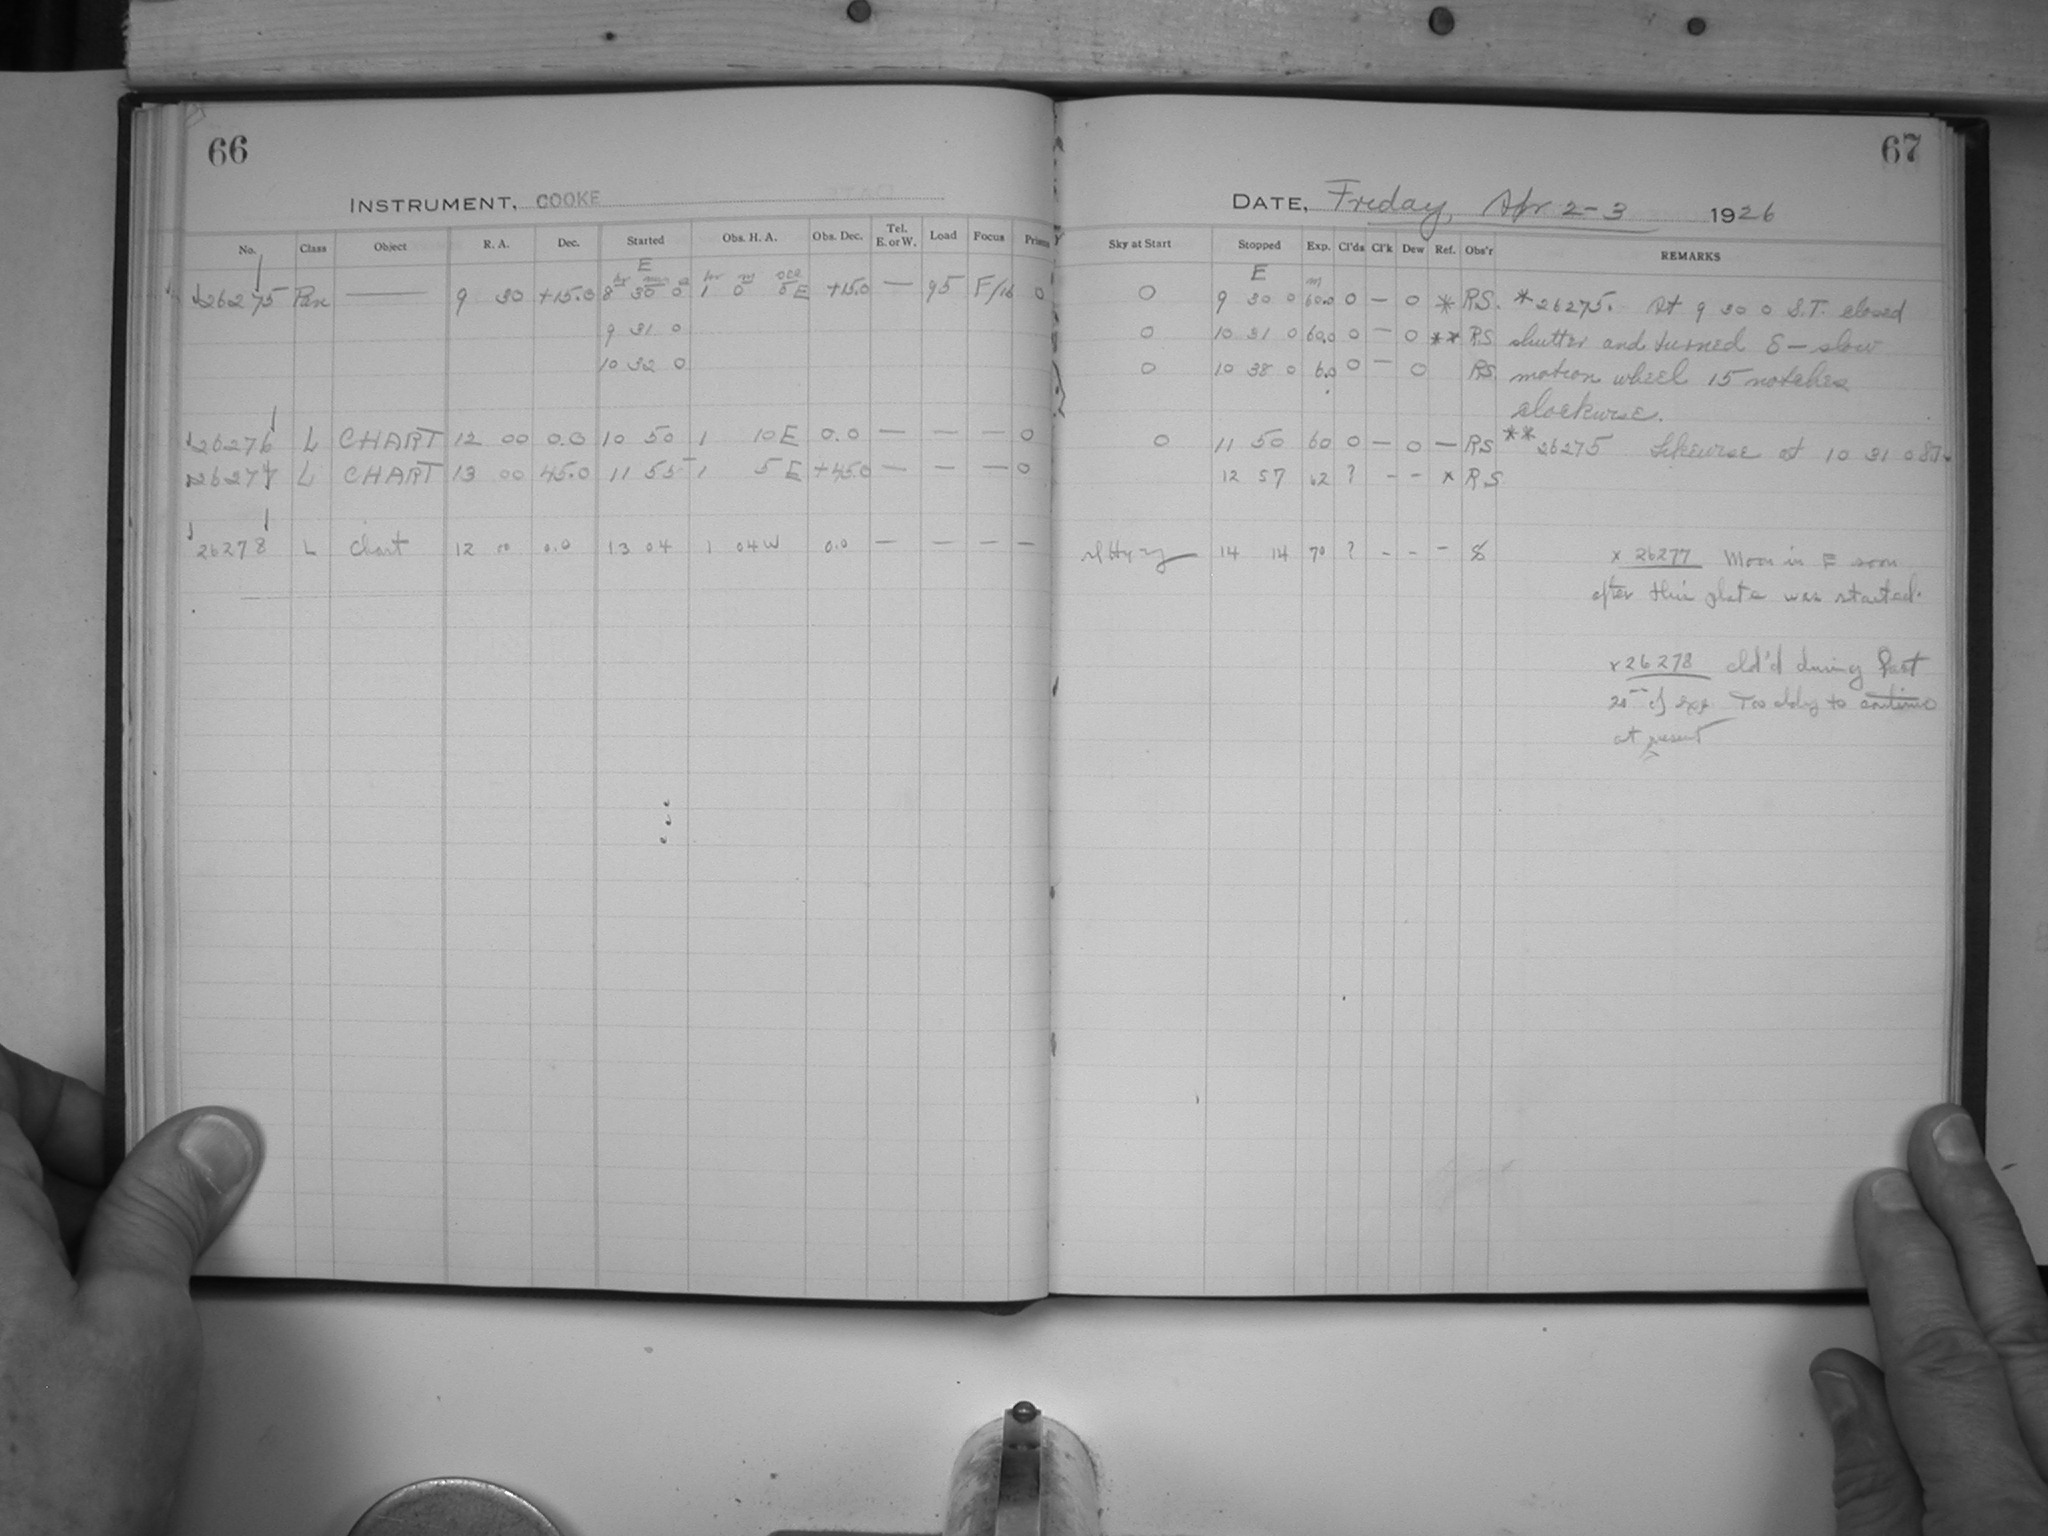 66
INSTRUMENT, COOKE
No. Class Object R. A. Dec. Started Obs. H. A. Obs. Dec. Tel. E. or W. Load Focus Prism
E
hr m sec
26275 9 30 +15.0 8 30 0 1 0 0 E +15.0 — 95 F/16 0
9 31 0
10 32 0
26276 L CHART 12 00 0.0 10 50 1 10 E 0.0 — — — 0
26277 L CHART 13 00 45.0 11 55 1 5 E +45.0 — — — 0
26278 L Chart 12 00 0.0 13 04 1 04 W 0.0 — — — —
67
DATE, Friday, Apr 2-3 1926
Sky at Start Stopped Exp. Cl'ds Cl'k Dew Ref. Obs'r REMARKS
E m
0 9 30 0 60.0 0 — 0 * RS. *26275. At 9 30 0 S.T. closed
0 10 31 0 60.0 0 — 0 ** RS shutter and turned δ — slow
0 10 38 0 6.0 0 — 0 RS motion wheel 15 notches
clockwise.
0 11 50 60 0 — 0 — RS **26275 Likewise at 10 31 0 ST.
12 57 62 ? - - x RS
14 14 70 ? - - -
x 26277 Moon in E soon
after this plate was started.
x 26278 cld'd during last
20 m of exp. Too cldy to continue
at present